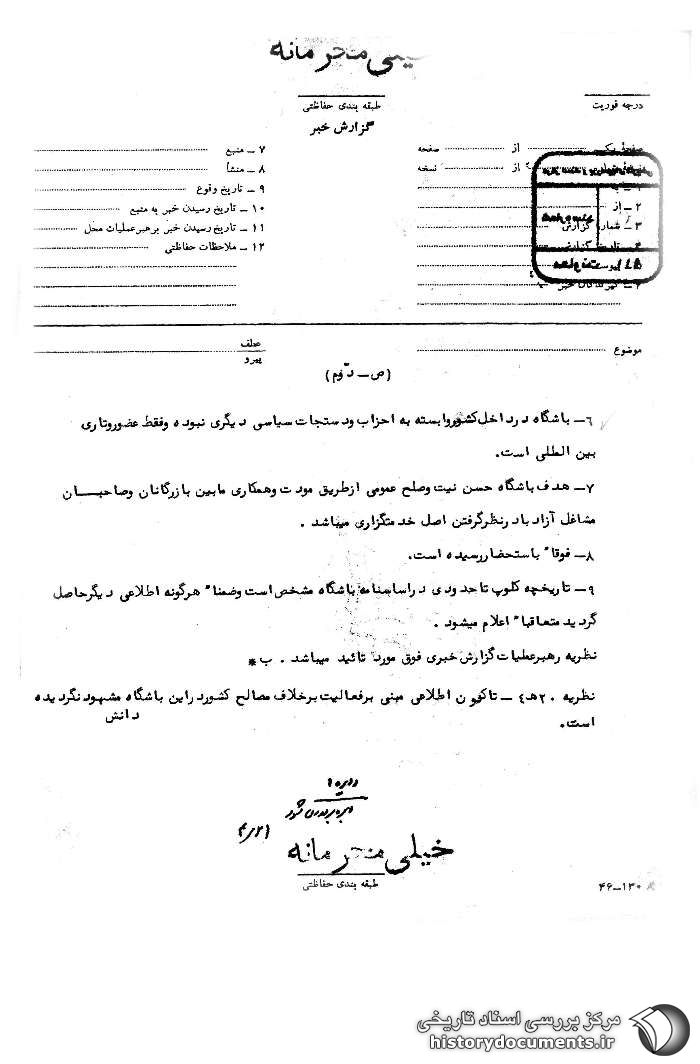 خیلی محرمانه
درجه فوریت
طبقه بندی حفاظتی
گزارش خبر
صفحهٔ یک از صفحه
از نسخه
۱ ـ به
۲ ـ از
۳ ـ شماره گزارش
۴ ـ تاریخ گزارش
۷ ـ منبع
۸ ـ منشأ
۹ ـ تاریخ وقوع
۱۰ ـ تاریخ رسیدن خبر به منبع
۱۱ ـ تاریخ رسیدن خبر برهبر عملیات محل
۱۲ ـ ملاحظات حفاظتی
موضوع
عطف
پیرو
(ص ـ دوّم)
۶ـ باشگاه درداخل کشوروابسته به احزاب ودستجات سیاسی دیگری نبوده وفقط عضوروتاری
بین المللی است.
۷ـ هدف باشگاه حسن نیت وصلح عمومی ازطریق مودت وهمکاری مابین بازرگانان وصاحبـــان
مشاغل آزاد بادرنظرگرفتن اصل خدمتگزاری میباشد .
۸ـ فوقا" باستحضاررسیده است.
۹ـ تاریخچه کلوپ تاحدودی دراساسنامه باشگاه مشخص است وضمنا" هرگونه اطلاعی دیگرحاصل
گردید متعاقبا" اعلام میشود .
نظریه رهبرعملیات گزارش خبری فوق مورد تائید میباشد . ب*
نظریه ۲۰هـ۴ ـ تاکنون اطلاعی مبنی برفعالیت برخلاف مصالح کشوردراین باشگاه مشهود نگردیده
است. دانش
خیلی محرمانه
طبقه بندی حفاظتی
۴۶ـ۱۳۰
مرکز بررسی اسناد تاریخی
historydocuments.ir